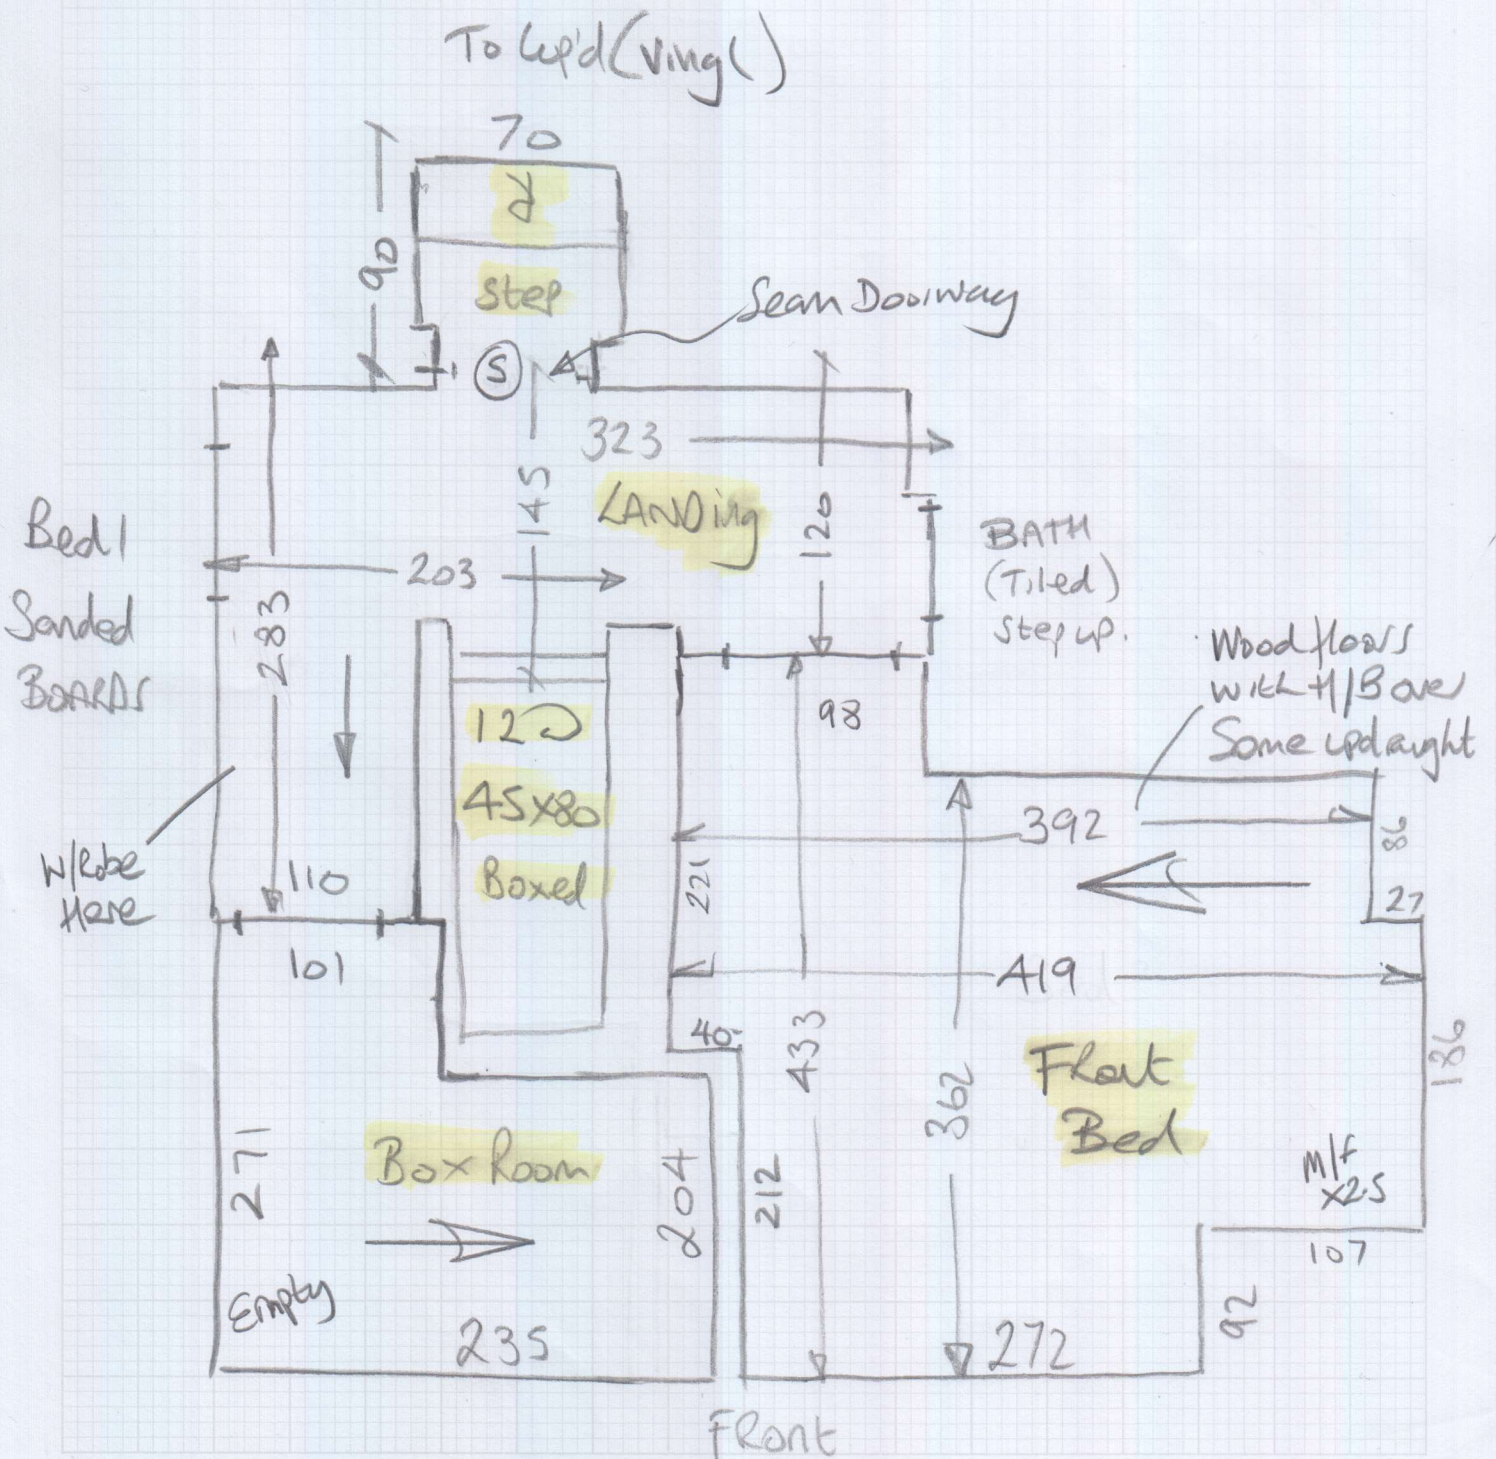 To Cup'd (Vinyl)
70
R
90
Step
Seam Doorway
S
323
145
LANDing
120
Bed 1
Sanded
BOARDS
203
283
BATH
(Tiled)
Step up.
Wood floors
with H/B over
Some updraught
98
12
45x80
Boxed
392
86
27
W/Robe
Here
110
101
221
419
40
433
362
Front
Bed
186
271
Box Room
204
212
M/F
x2.5
107
92
Empty
235
272
FRont